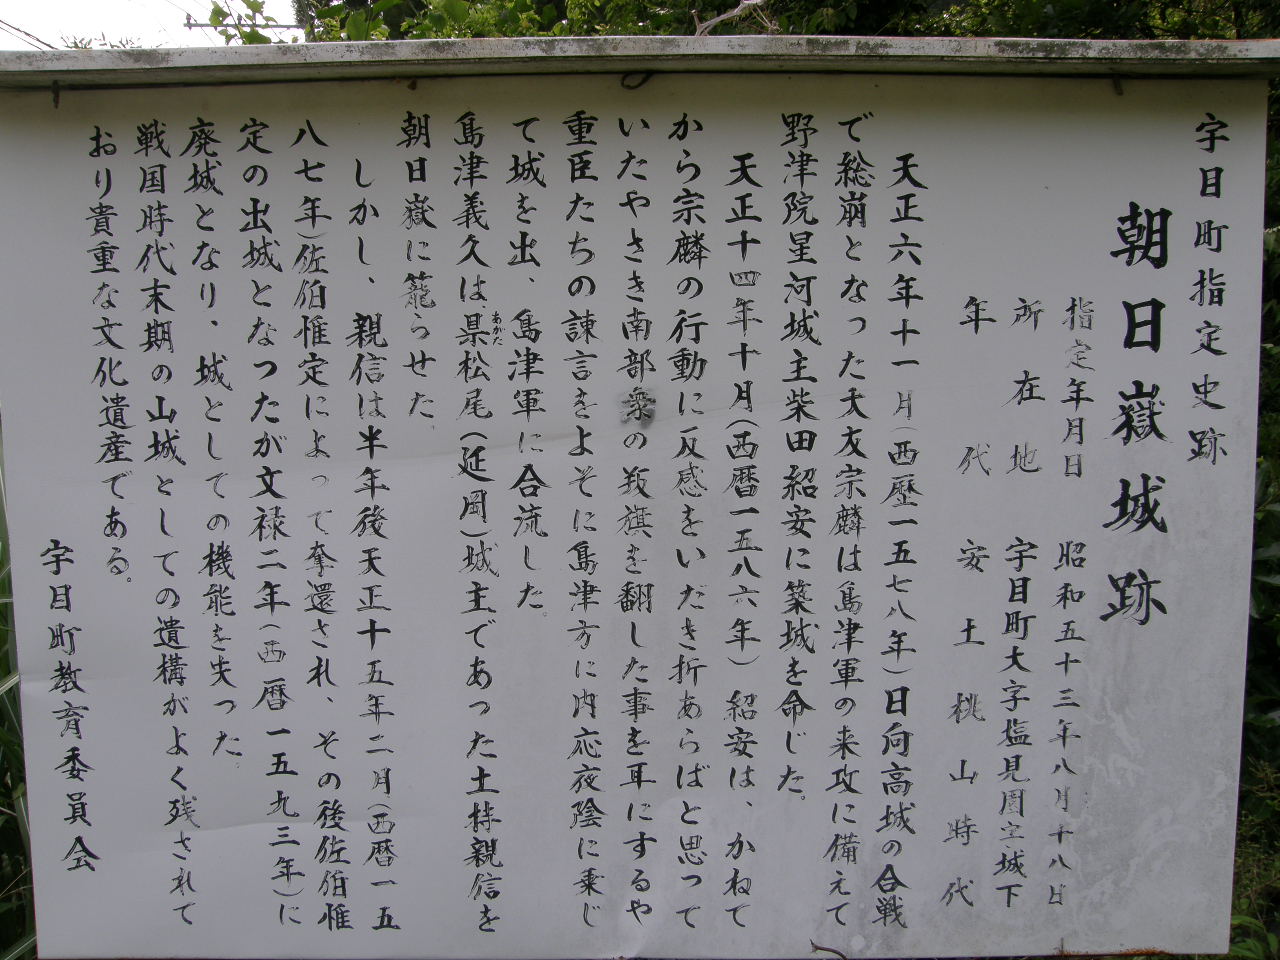 宇目町指定史跡
朝日嶽城跡
指定年月日 昭和五十三年八月十八日
所在地 宇目町大字塩見園字城下
年代 安土桃山時代
天正六年十一月(西歴一五七八年)日向高城の合戦
で総崩となった大友宗麟は島津軍の来攻に備えて
野津院星河城主柴田紹安に築城を命じた。
天正十四年十月(西暦一五八六年)紹安は、かねて
から宗麟の行動に反感をいだき折あらばと思って
いたやさき南部衆の叛旗を翻した事を耳にするや
重臣たちの諫言をよそに島津方に内応夜陰に乗じ
て城を出、島津軍に合流した。
島津義久は県松尾(延岡)城主であった土持親信を
あがた
朝日嶽に籠らせた。
しかし、親信は半年後天正十五年二月(西暦一五
八七年)佐伯惟定によって奪還され、その後佐伯惟
定の出城となつたが文禄二年(西暦一五九三年)に
廃城となり、城としての機能を失った。
戦国時代末期の山城としての遺構がよく残されて
おり貴重な文化遺産である。
宇目町教育委員会